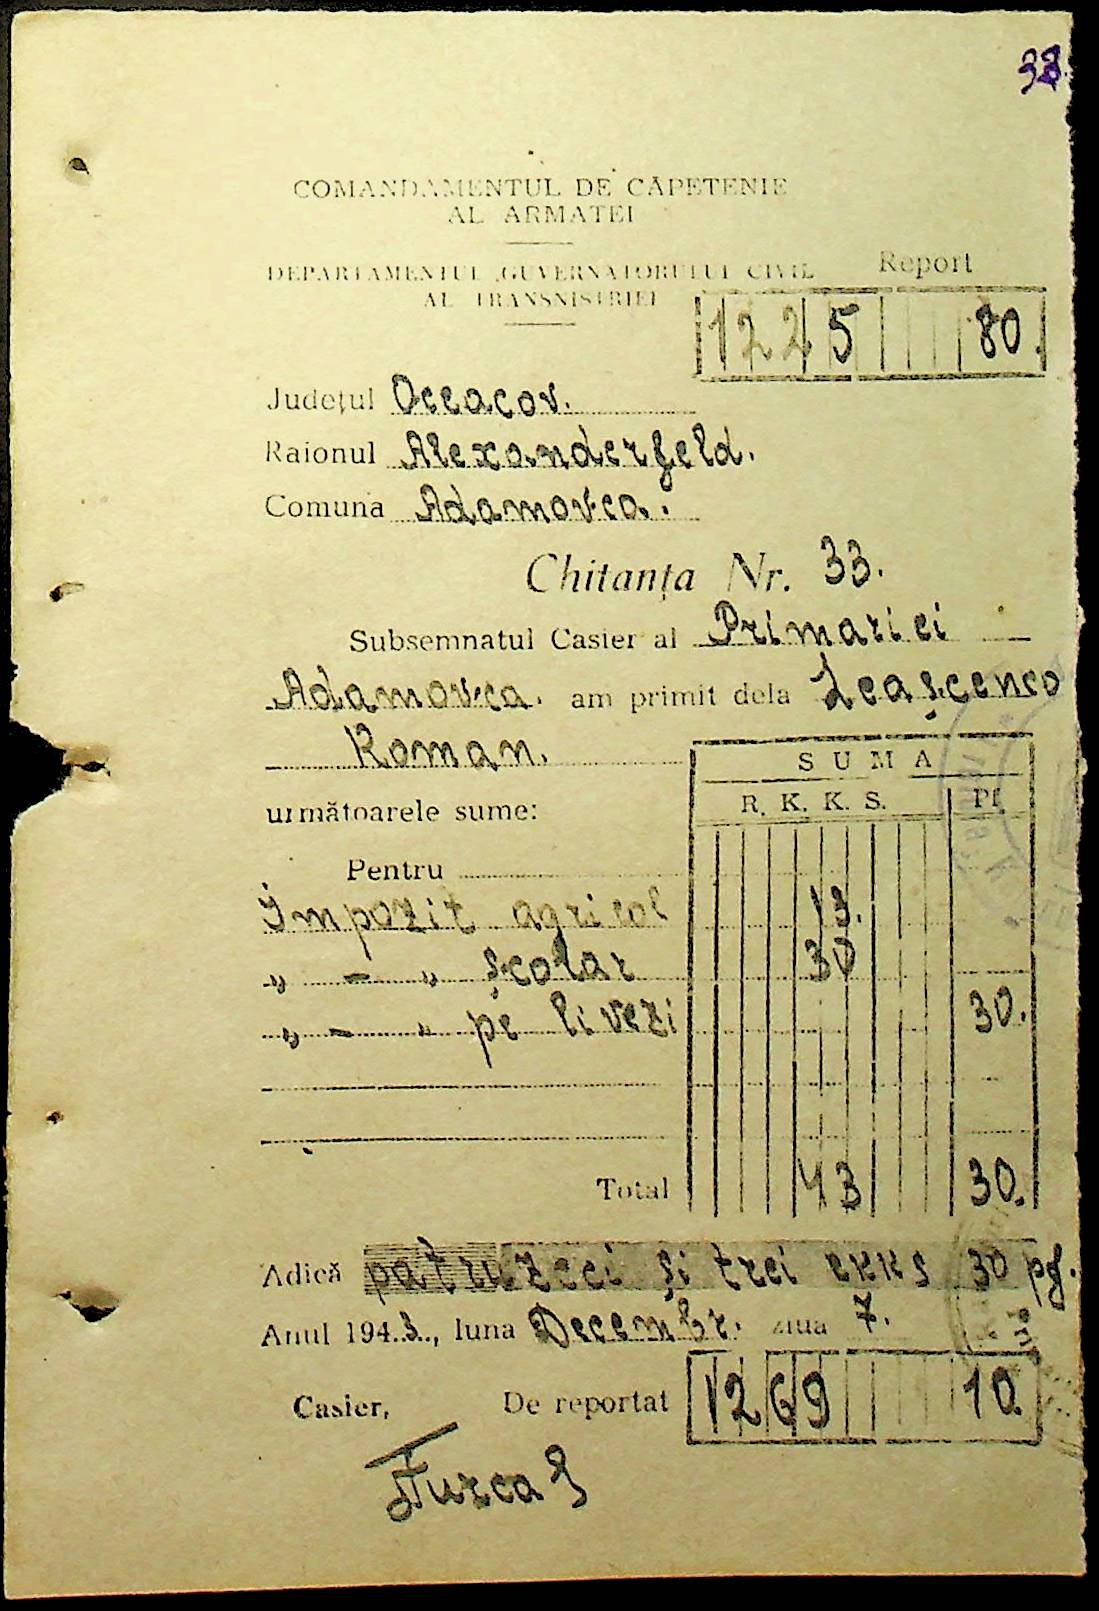 33.
COMANDAMENTUL DE CĂPETENIE
AL ARMATEI
DEPARTAMENTUL GUVERNATORULUI CIVIL
AL TRANSNISTRIEI
Report
1225 80.
Județul Oceacov.
Raionul Alexanderfeld.
Comuna Adamovca.
Chitanța Nr. 33.
Subsemnatul Casier al Primariei
Adamovca. am primit dela Leașcenco
Roman.
SUMA
următoarele sume:
R. K. K. S. Pf.
Pentru
Impozit agricol 13.
„ - „ școlar 30
„ - „ pe livezi 30.
Total 43 30.
Adică patruzeci și trei rkks 30 pf.
Anul 1943., luna Decembr. ziua 7.
Casier, De reportat 1269 10.